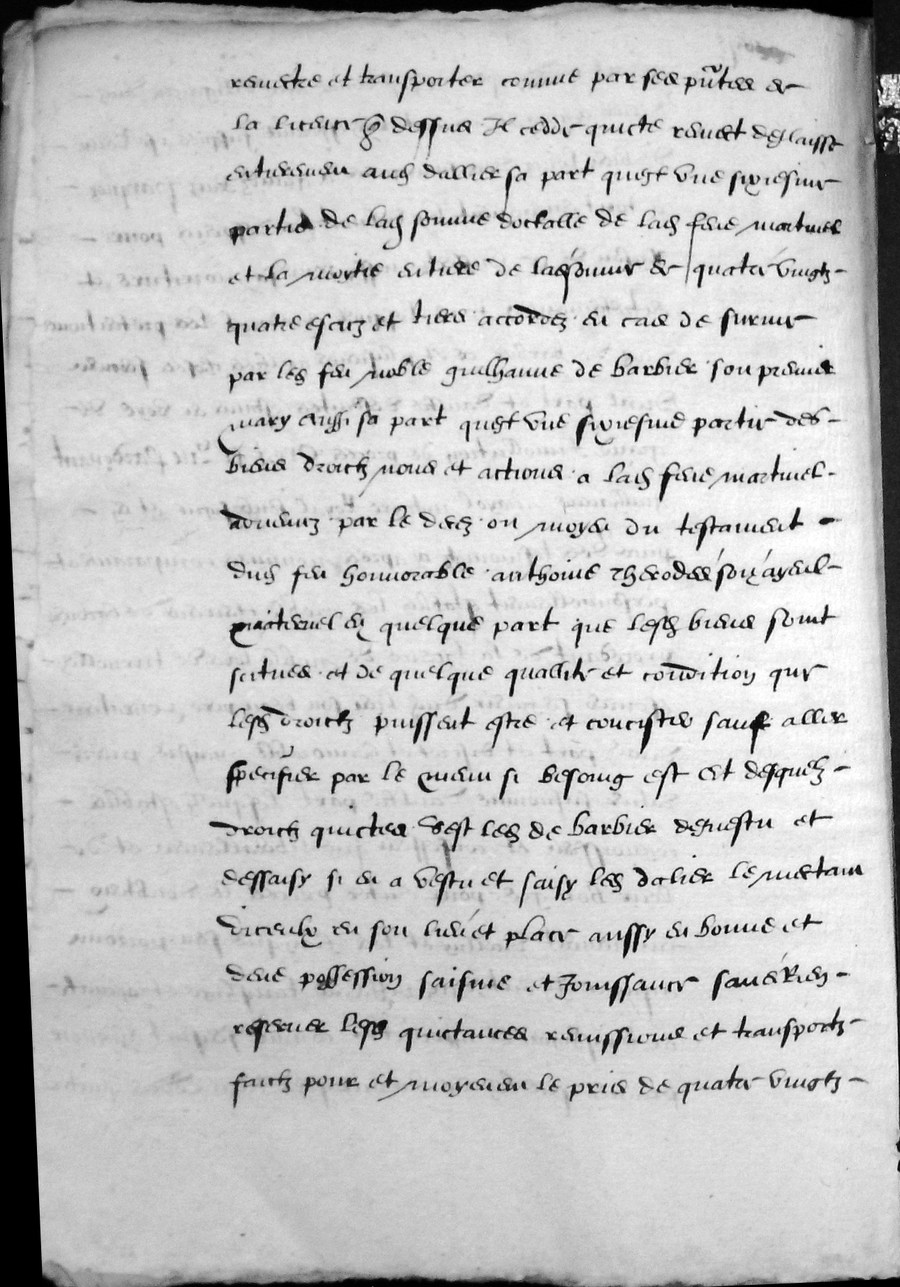 remetre et transporter comme par ses pntes et
la licence q dessus Il cedde quicte remet deglaisse
entieremen aud dallier sa part quest une sixiesme
partie de lad somme doctalle de lad feue martinel
et la moytie entiere de lad somme de quatre vingtz
quatre escuz et tiers accordez en cas de survie
par led feu noble guilhaume de barbier son premier
mary Aussi sa part quest une sixiesme partie des
biens droictz noms et actions a lad feue martinel
advenuz par le decez ou moyen du testament
dud feu honnorable anthoine rherodes son ayeul
maternel en quelque part que lesd biens soint
scitues et de quelque quallite et condition que
lesd droictz puissent estre et concister sauf aller
speciffier par le menu si besoing est Et desquelz
droictz quictes sest led de barbier devestu et
dessaisy si en a vestu et saisy led dalier le metant
diceulx en son lieu et place aussy en bonne et
deue possession saisine et Jouissance sans Rien
reserver lesd quictances remissions et transportz
faictz pour et moyenen le pris de quatre vingtz